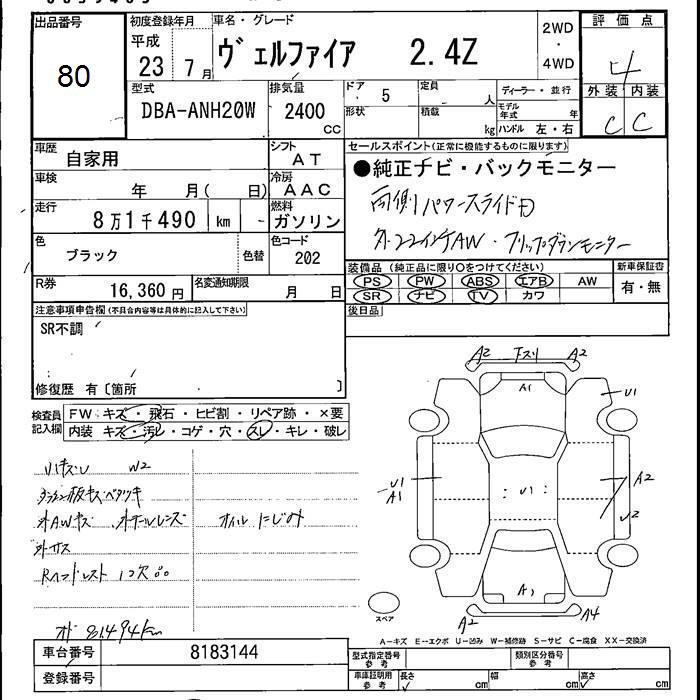 出品番号
80
初度登録年月
平成
23 7月
車名・グレード
ヴェルファイア 2.4Z
2WD
・
4WD
評価点
4
外装 内装
C C
型式
DBA-ANH20W
排気量
2400
CC
ドア
5
定員
人
形状
積載
kg
ディーラー・並行
モデル年式
年
ハンドル 左・右
車歴
自家用
シフト
AT
車検
年 月( 日)
冷房
AAC
走行
8万1千490 km
燃料
ガソリン
色
ブラック
色替
色コード
202
R券
16,360円
名変通知期限
月 日
セールスポイント(正常に機能するものに限ります)
●純正ナビ・バックモニター
両側パワースライドD
外22インチAW・フリップダウンモニター
装備品(純正品に限り○をつけてください)
PS PW ABS エアB AW
SR ナビ TV カワ
新車保証書
有・無
後日品
注意事項申告欄(不具合内容等は具体的に記入して下さい)
SR不調
修復歴 有〔箇所 〕
検査員
記入欄
FW キズ・飛石・ヒビ割・リペア跡・×要
内装 キズ・汚レ・コゲ・穴・スレ・キレ・破レ
W2
オイルにじみ
オド 81494km
A2 下スリ A2
A1
U1
U1
A1
U1
A2
U2
A1
A2 A4
スペア
A―キズ E―エクボ U―凹み W―補修跡 S―サビ C―腐食 XX―交換済
車台番号
8183144
登録番号
型式指定番号
参考
類別区分番号
参考
車庫証明用
参考
長さ
cm
幅
cm
高さ
cm